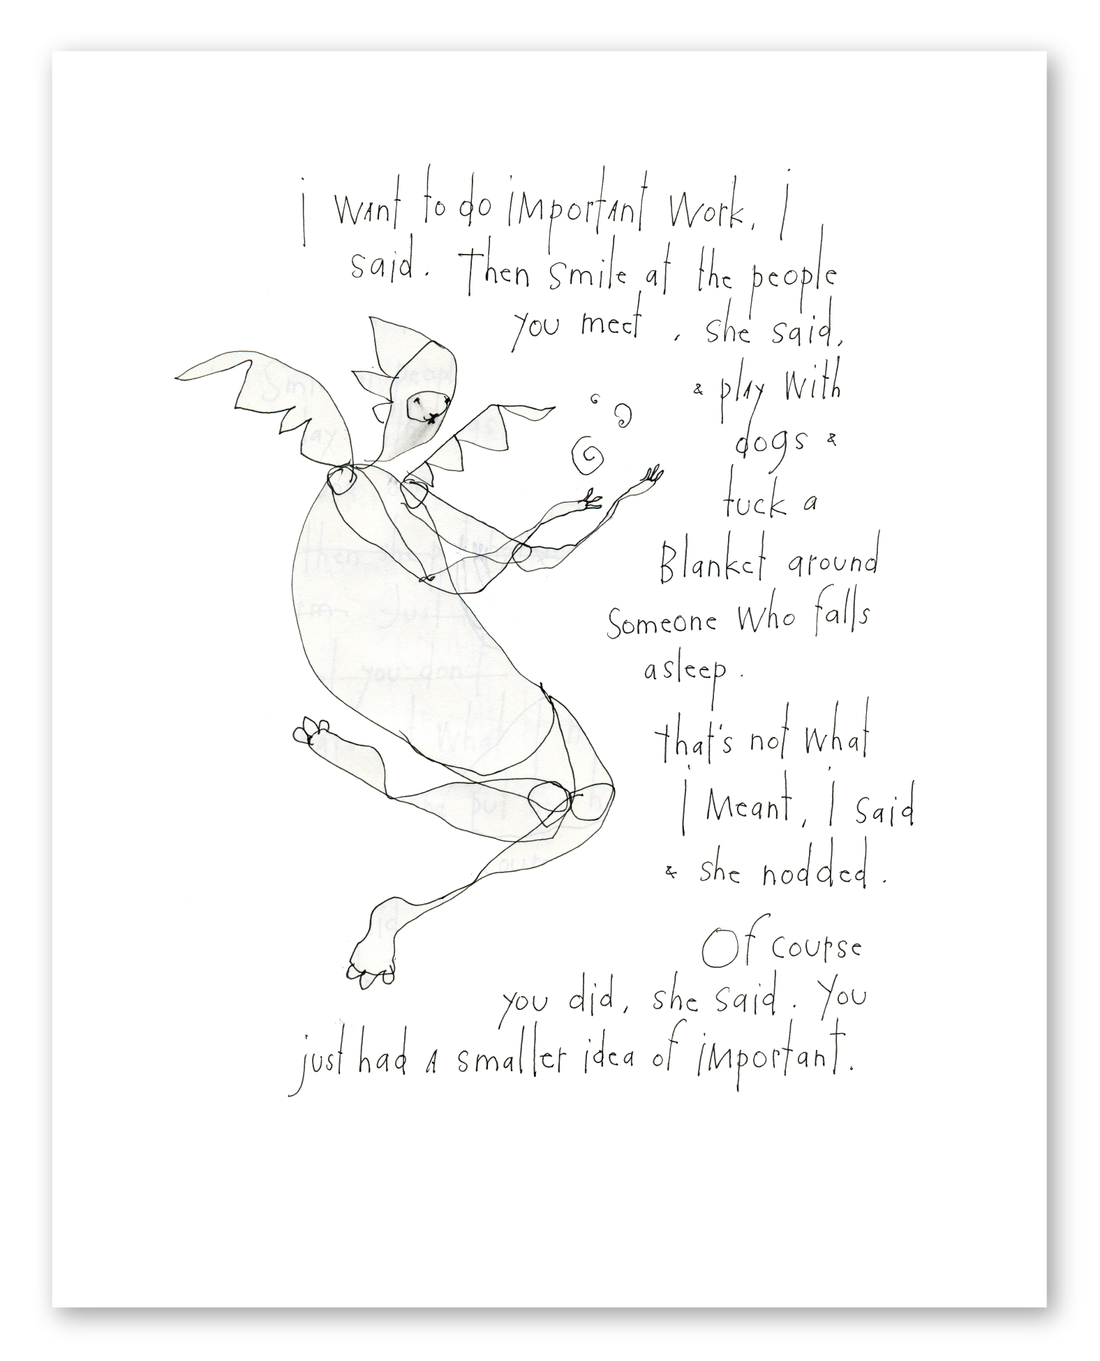 i want to do important work, I
said. Then smile at the people
you meet, she said,
& play with
dogs &
tuck a
Blanket around
someone who falls
asleep.
that's not what
I meant, I said
& she nodded.
Of course
you did, she said. You
just had a smaller idea of important.